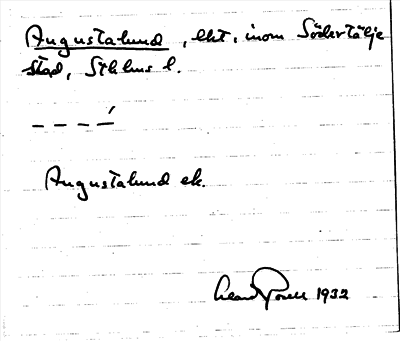 Augustalund, lht, inom Södertälje
stad, Sthlms l.
– – – –́
Augustalund ek.
1932